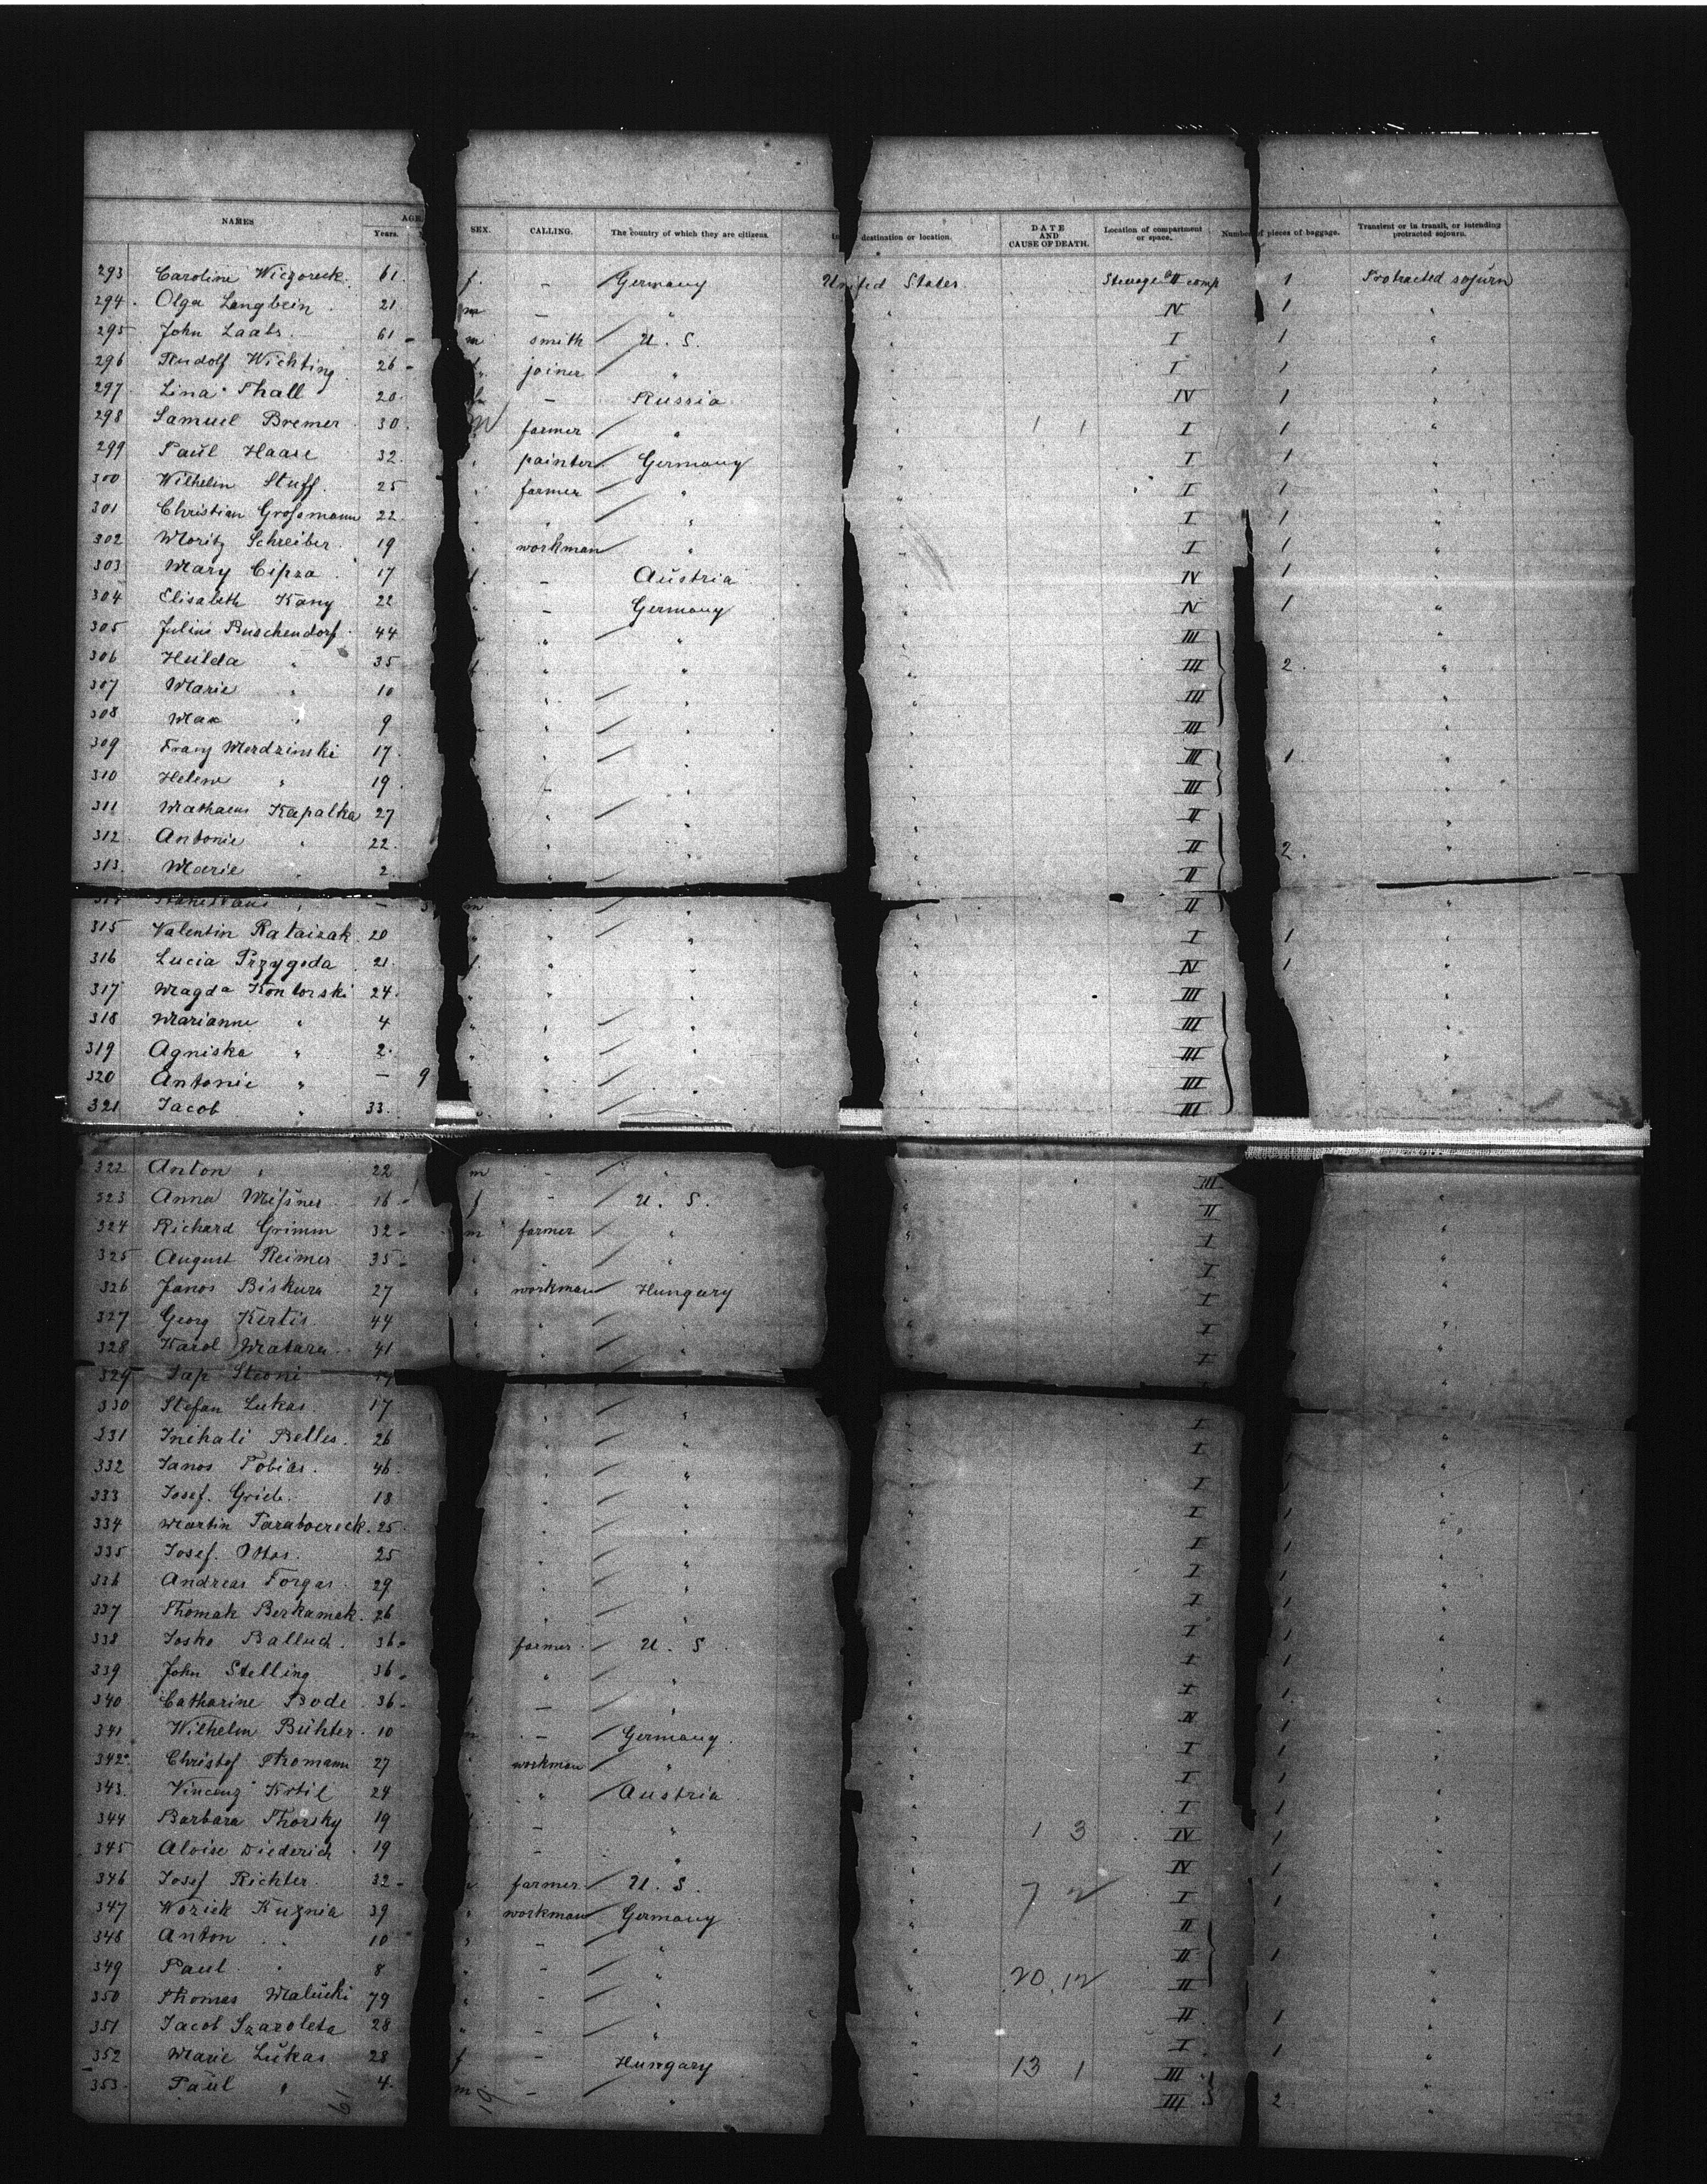 NAMES AGE. Years. SEX. CALLING. The country of which they are citizens. destination or location. DATE AND CAUSE OF DEATH. Location of compartment or space. Number of pieces of baggage. Transient or in transit, or intending protracted sojourn.
293 Caroline Wiczoreck 61 f. – Germany United States Steerage II comp 1 Protracted sojurn
294 Olga Langbein 21 – " " IV 1 "
295 John Laabs 61 m smith U. S. " I 1 "
296 Rudolf Wichting 26 " joiner " " I 1 "
297 Lina Thall 20 – Russia " IV 1 "
298 Samuel Bremer 30 farmer " " 1 1 I 1 "
299 Paul Haase 32 " painter Germany " I 1 "
300 Wilhelm Stuff 25 " farmer " " I 1 "
301 Christian Grossmann 22 " " " " I 1 "
302 Moritz Schreiber 19 " workman " " I 1 "
303 Mary Cipra 17 f. – Austria " IV 1 "
304 Elisabeth Kany 22 " – Germany " IV 1 "
305 Julius Buschendorf 44 " " " III "
306 Hulda " 35 f " " " III 2 "
307 Marie " 10 " " " III "
308 Max " 9 " " " III "
309 Franz Merdzinski 17 " " " III 1 "
310 Helene " 19 " " III "
311 Mathaeus Kapalka 27 " " " II "
312 Antonie " 22 " " " II 2 "
313 Marie " 2 " " " II "
Stanislaus " – m " " " II "
315 Valentin Rataizak 20 " " " " I 1 "
316 Lucia Przygoda 21 f. " " " IV 1 "
317 Magda Kontorski 24 " " " " III "
318 Marianne " 4 " " " " III "
319 Agniska " 2 " " " " III "
320 Antonie " – 9 " " " III "
321 Jacob " 33 " " " III
322 Anton " 22 m – " " III
323 Anna Missner 16 f – U. S. " II "
324 Richard Grimm 32 m farmer " " I "
325 August Reimer 35 " " " " I "
326 Janos Biskura 27 " workman Hungary " I "
327 Georg Kertis 44 " " " " I "
328 Karol Matara 41 " " " " I "
329
330 Stefan Lukas 17 " " " I "
331 Belles 26 " " " I "
332 Janos Tobias 46 " " " I "
333 Josef Grich 18 " " " I "
334 Martin 25 " " " I 1 "
335 Josef 25 " " " I 1 "
336 Andreas Forgas 29 " " " I 1 "
337 Thomak Berkamak 26 " " " I 1 "
338 Josko Balluch 36 farmer U. S. " I 1 "
339 John Stelling 36 " " " I 1 "
340 Catharine Bode 36 – " " I 1 "
341 Wilhelm Bühler 10 – Germany " IV 1 "
342 Christof Thomann 27 workman " " I 1 "
343 Vincenz Krtil 24 " " Austria " I 1 "
344 Barbara Thorsky 19 – " " 1 3 I 1 "
345 Aloise Diederich 19 – " " IV 1 "
346 Josef Richter 32 " farmer U. S. " 7 2 IV 1 "
347 Kuznia 39 " workman Germany " I 1 "
348 Anton " 10 " – " " II "
349 Paul " 8 " – " " 20 12 II 1 "
350 Thomas Malucki 79 " – " " II "
351 Jacob Szaroleta 28 " – " " II 1 "
352 Marie Lukas 28 f – Hungary " 13 1 I 1 "
353 Paul " 4 m – " " III 2 "
19